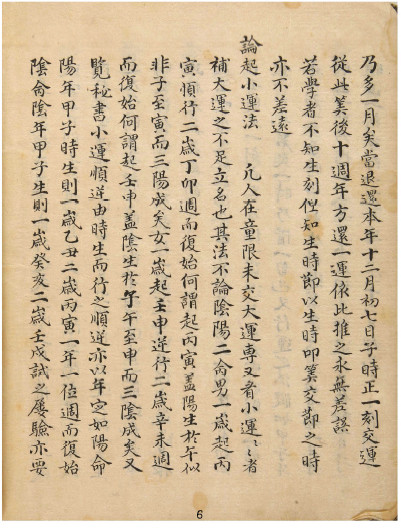 乃多一月矣當退還本年十二月初七日子時正一刻交運
從此筭後十週年方還一運依此推之永無差誤
若學者不知生刻但知生時節以生時叩筭交節之時
亦不差遠
論起小運法　凢人在童限未交大運專又看小運〻者
補大運之不足立名也其法不論陰陽二命男一歲起丙
寅順行二歲丁卯週而復始何謂起丙寅盖陽生於午似
非子至寅而三陽成矣女一歲起壬申逆行二歲辛未週
而復始何謂起壬申盖陰生於午午至申而三陰成矣又
覽秘書小運順逆由時生而行之順逆亦以年定如陽命
陽年甲子時生則一歲乙丑二歲丙寅一年一位週而復始
陰命陰年甲子生則一歲癸亥二歲壬戌試之屡驗亦要
6